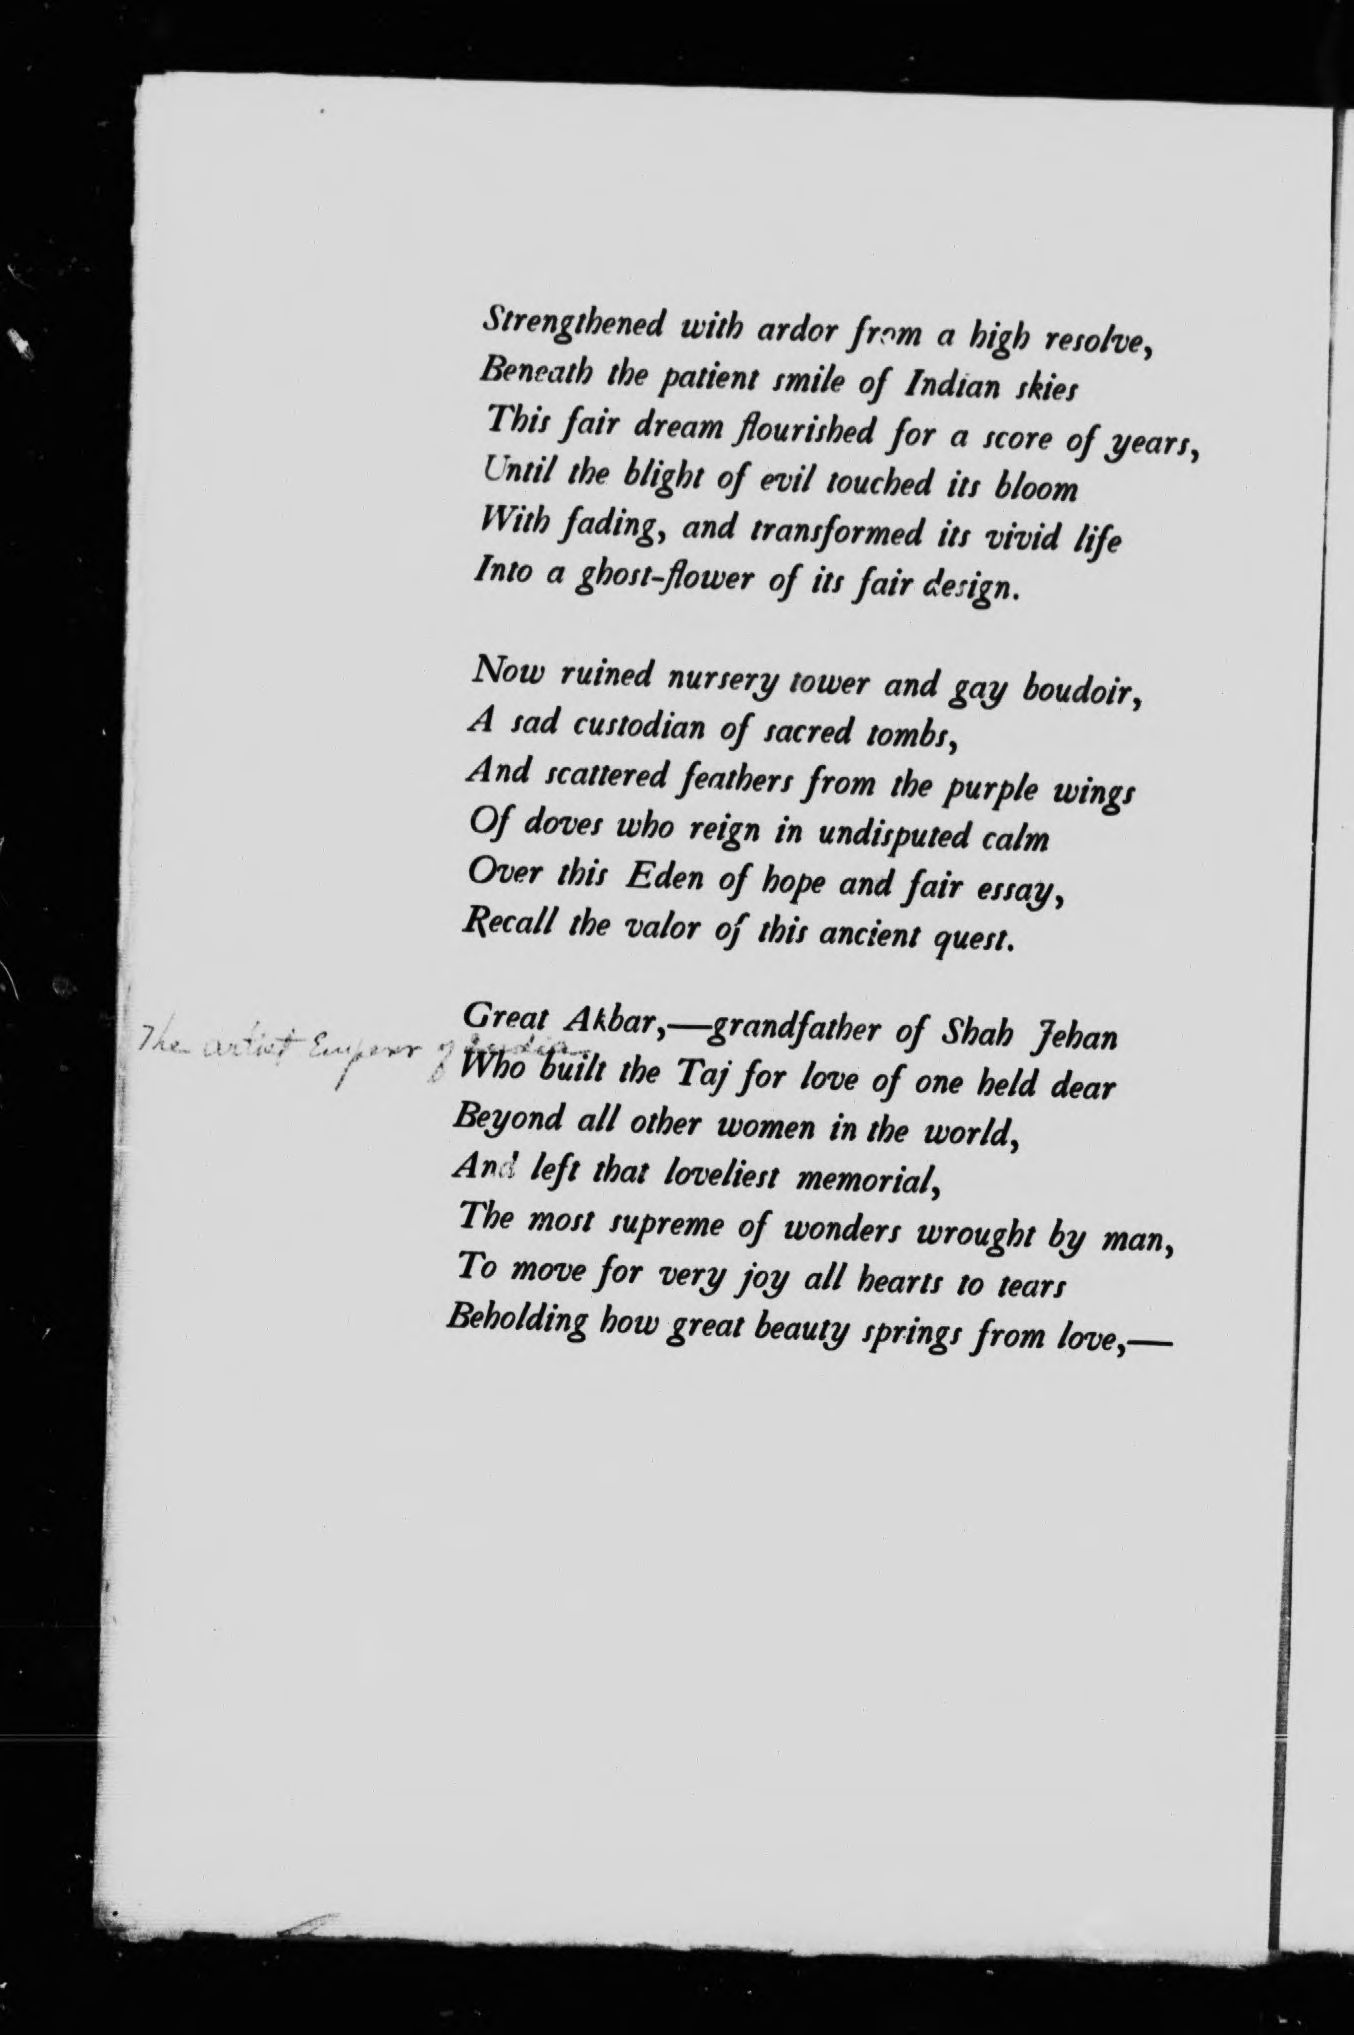 Strengthened with ardor from a high resolve,
Beneath the patient smile of Indian skies
This fair dream flourished for a score of years,
Until the blight of evil touched its bloom
With fading, and transformed its vivid life
Into a ghost-flower of its fair design.
Now ruined nursery tower and gay boudoir,
A sad custodian of sacred tombs,
And scattered feathers from the purple wings
Of doves who reign in undisputed calm
Over this Eden of hope and fair essay,
Recall the valor of this ancient quest.
Great Akbar,—grandfather of Shah Jehan
The artist Emperor of India.
Who built the Taj for love of one held dear
Beyond all other women in the world,
And left that loveliest memorial,
The most supreme of wonders wrought by man,
To move for very joy all hearts to tears
Beholding how great beauty springs from love,—